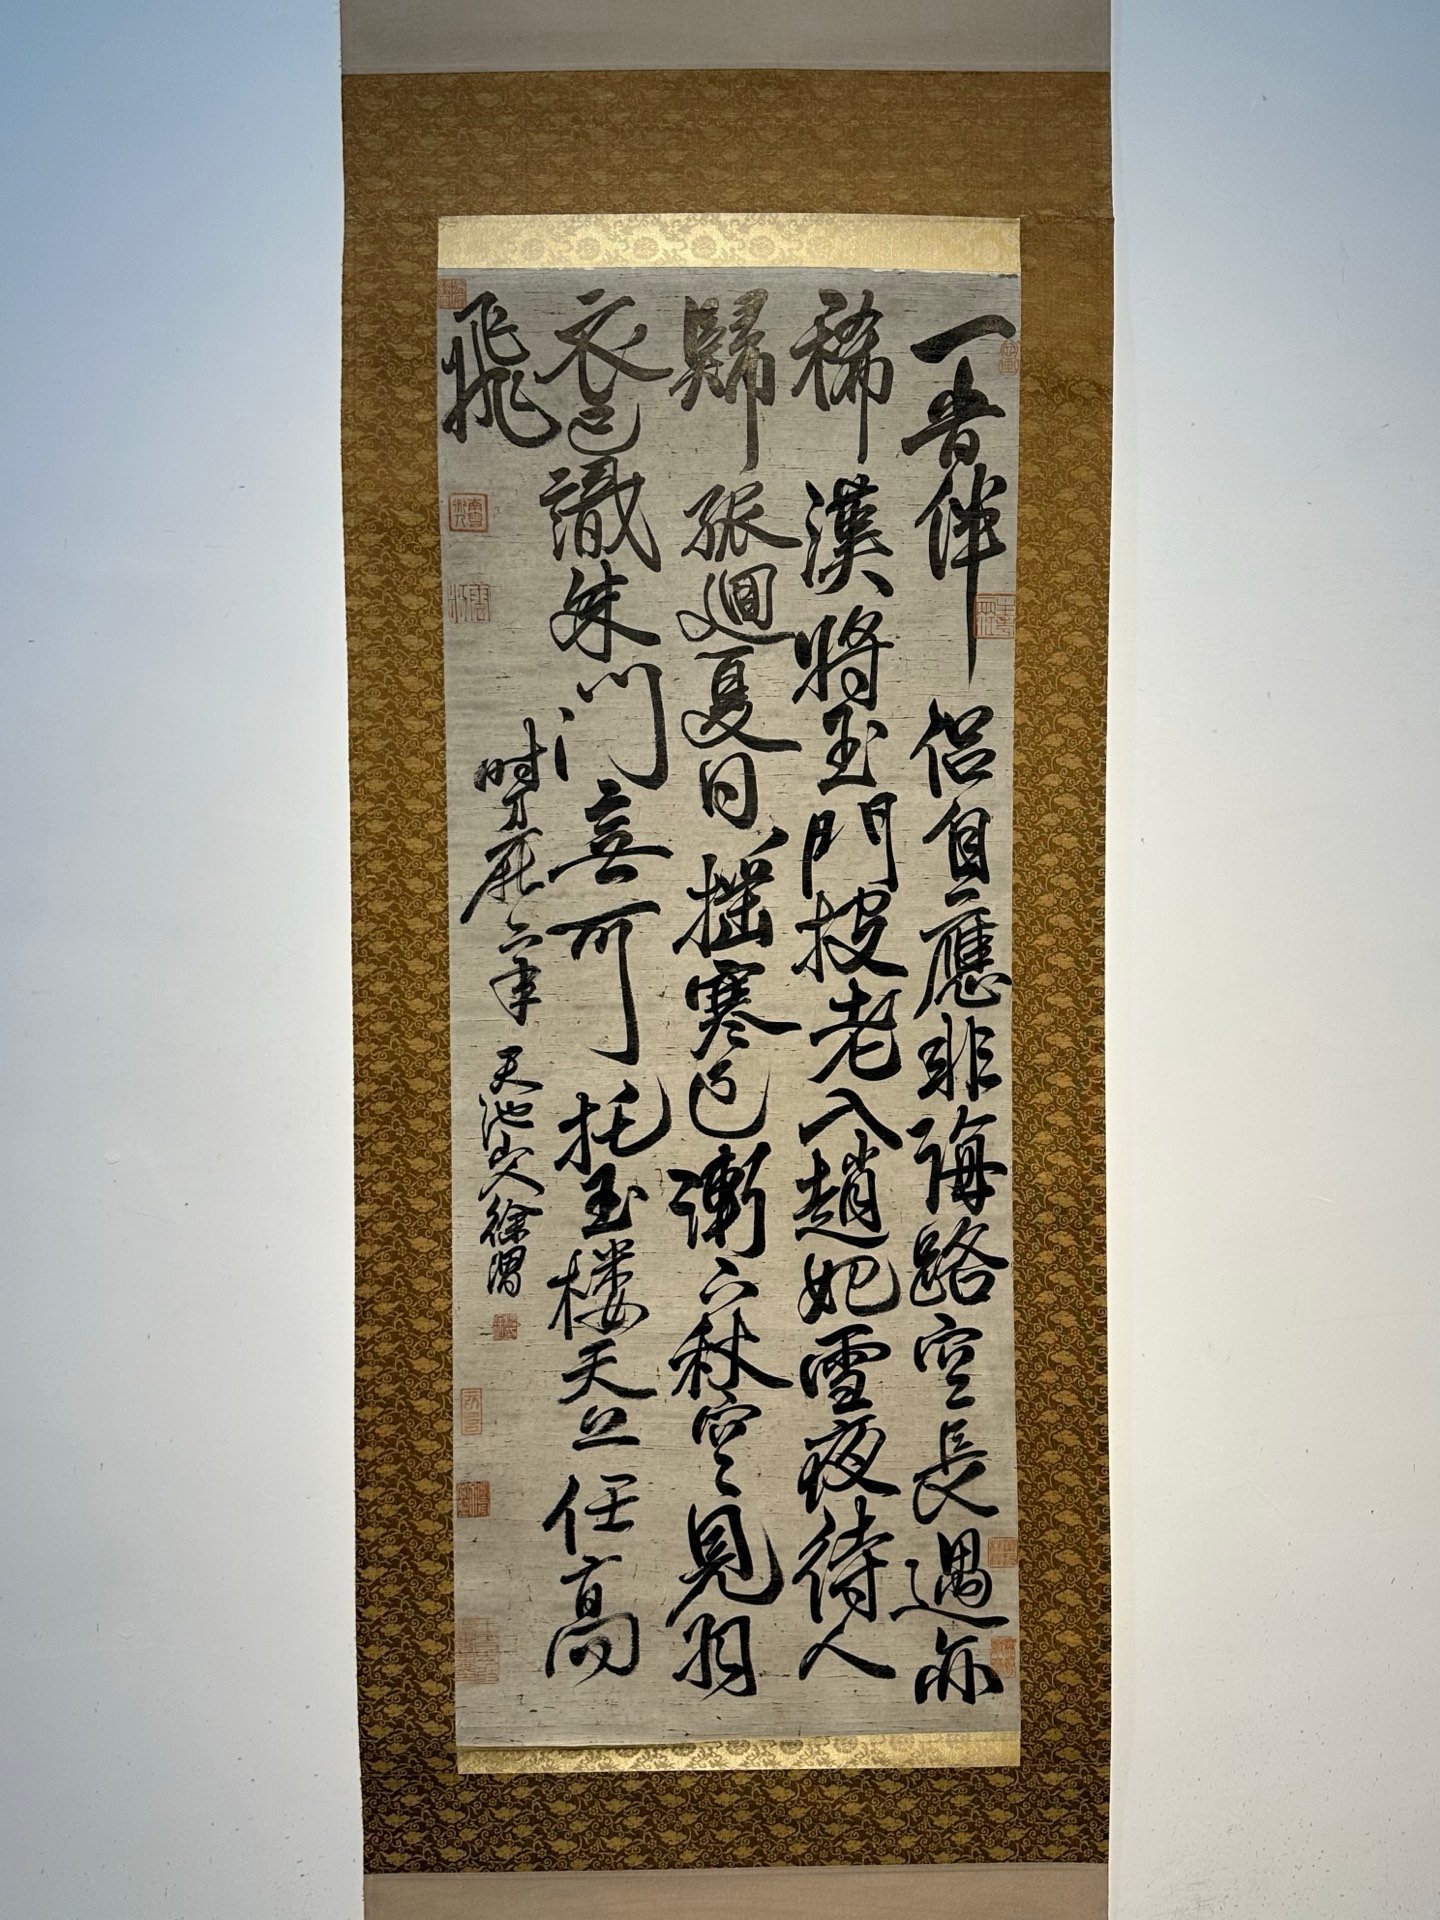 一昔伴侣自應非海路空長遇亦
稀漢將玉門投老入趙妃雪夜待人
歸孤迴夏日搖寒色漸下秋空見羽
衣已識朱門無可托玉楼天上任高
飛
时万曆六年天池山人徐渭